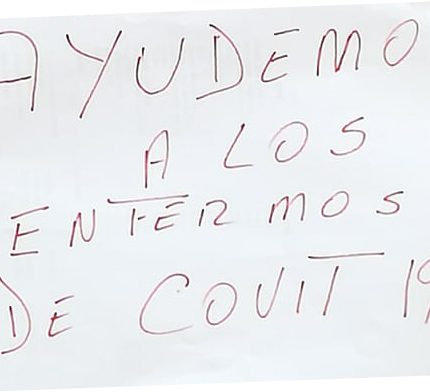 AYUDEMO
A LOS
ENFERMOS
DE COVIT 19